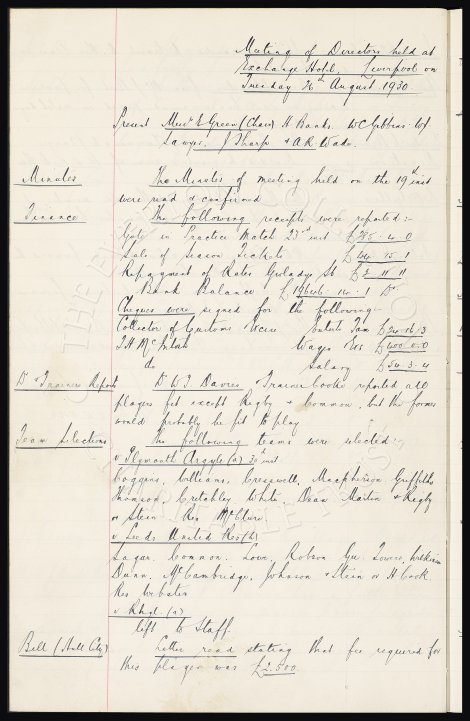 Meeting of Directors held at
Exchange Hotel, Liverpool on
Tuesday 26th August 1930
Present Messrs E Green (Chair) H Banks. WC Gibbins. W
Sawyer. J Sharp & A R Wade.
Minutes The Minutes of meeting held on the 19th inst
were read & confirmed
Finance The following receipts were reported:-
Gate in Practice Match 23rd inst £
Sale of Season Tickets £ 15 1
Repayment of Rates Goodison St £ 11 11
Bank Balance £ Dr
Cheques were signed for the following:-
Collector of Customs Excise Ents Tax £
T H McIntosh Wages Etc £400. 0. 0
do Salary £54. 3. 4
Dr & Trainers Report Dr W J Davies & Trainer Cooke reported all
players fit except Rigby & Common, but the former
would probably be fit to play
Team Selections The following teams were selected:-
v Plymouth Argyle (a) 30th inst
Coggins, Williams, Cresswell, MacPherson Griffiths
Thomson, Critchley White, Dean Martin & Rigby
or Stein Res McClure
v Leeds United Res (h)
Sagar. Common. Lowe, Robson Gee. Towers, Wilkinson
Dunn. McCambridge, Johnson & Stein or H Cook
Res Webster
v Rhyl. (a)
left to Staff.
Bell (Hull City) Letter read stating that fee required for
this player was £2.500.